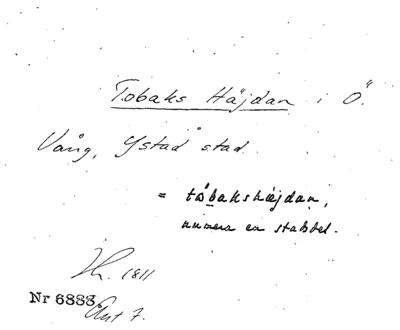 Tobaks Häjdan i Ö.
Vång, Ystad stad.
= tåbakshäjdan,
numera en stabbel.
1811
Nr 6888
Akt 7.